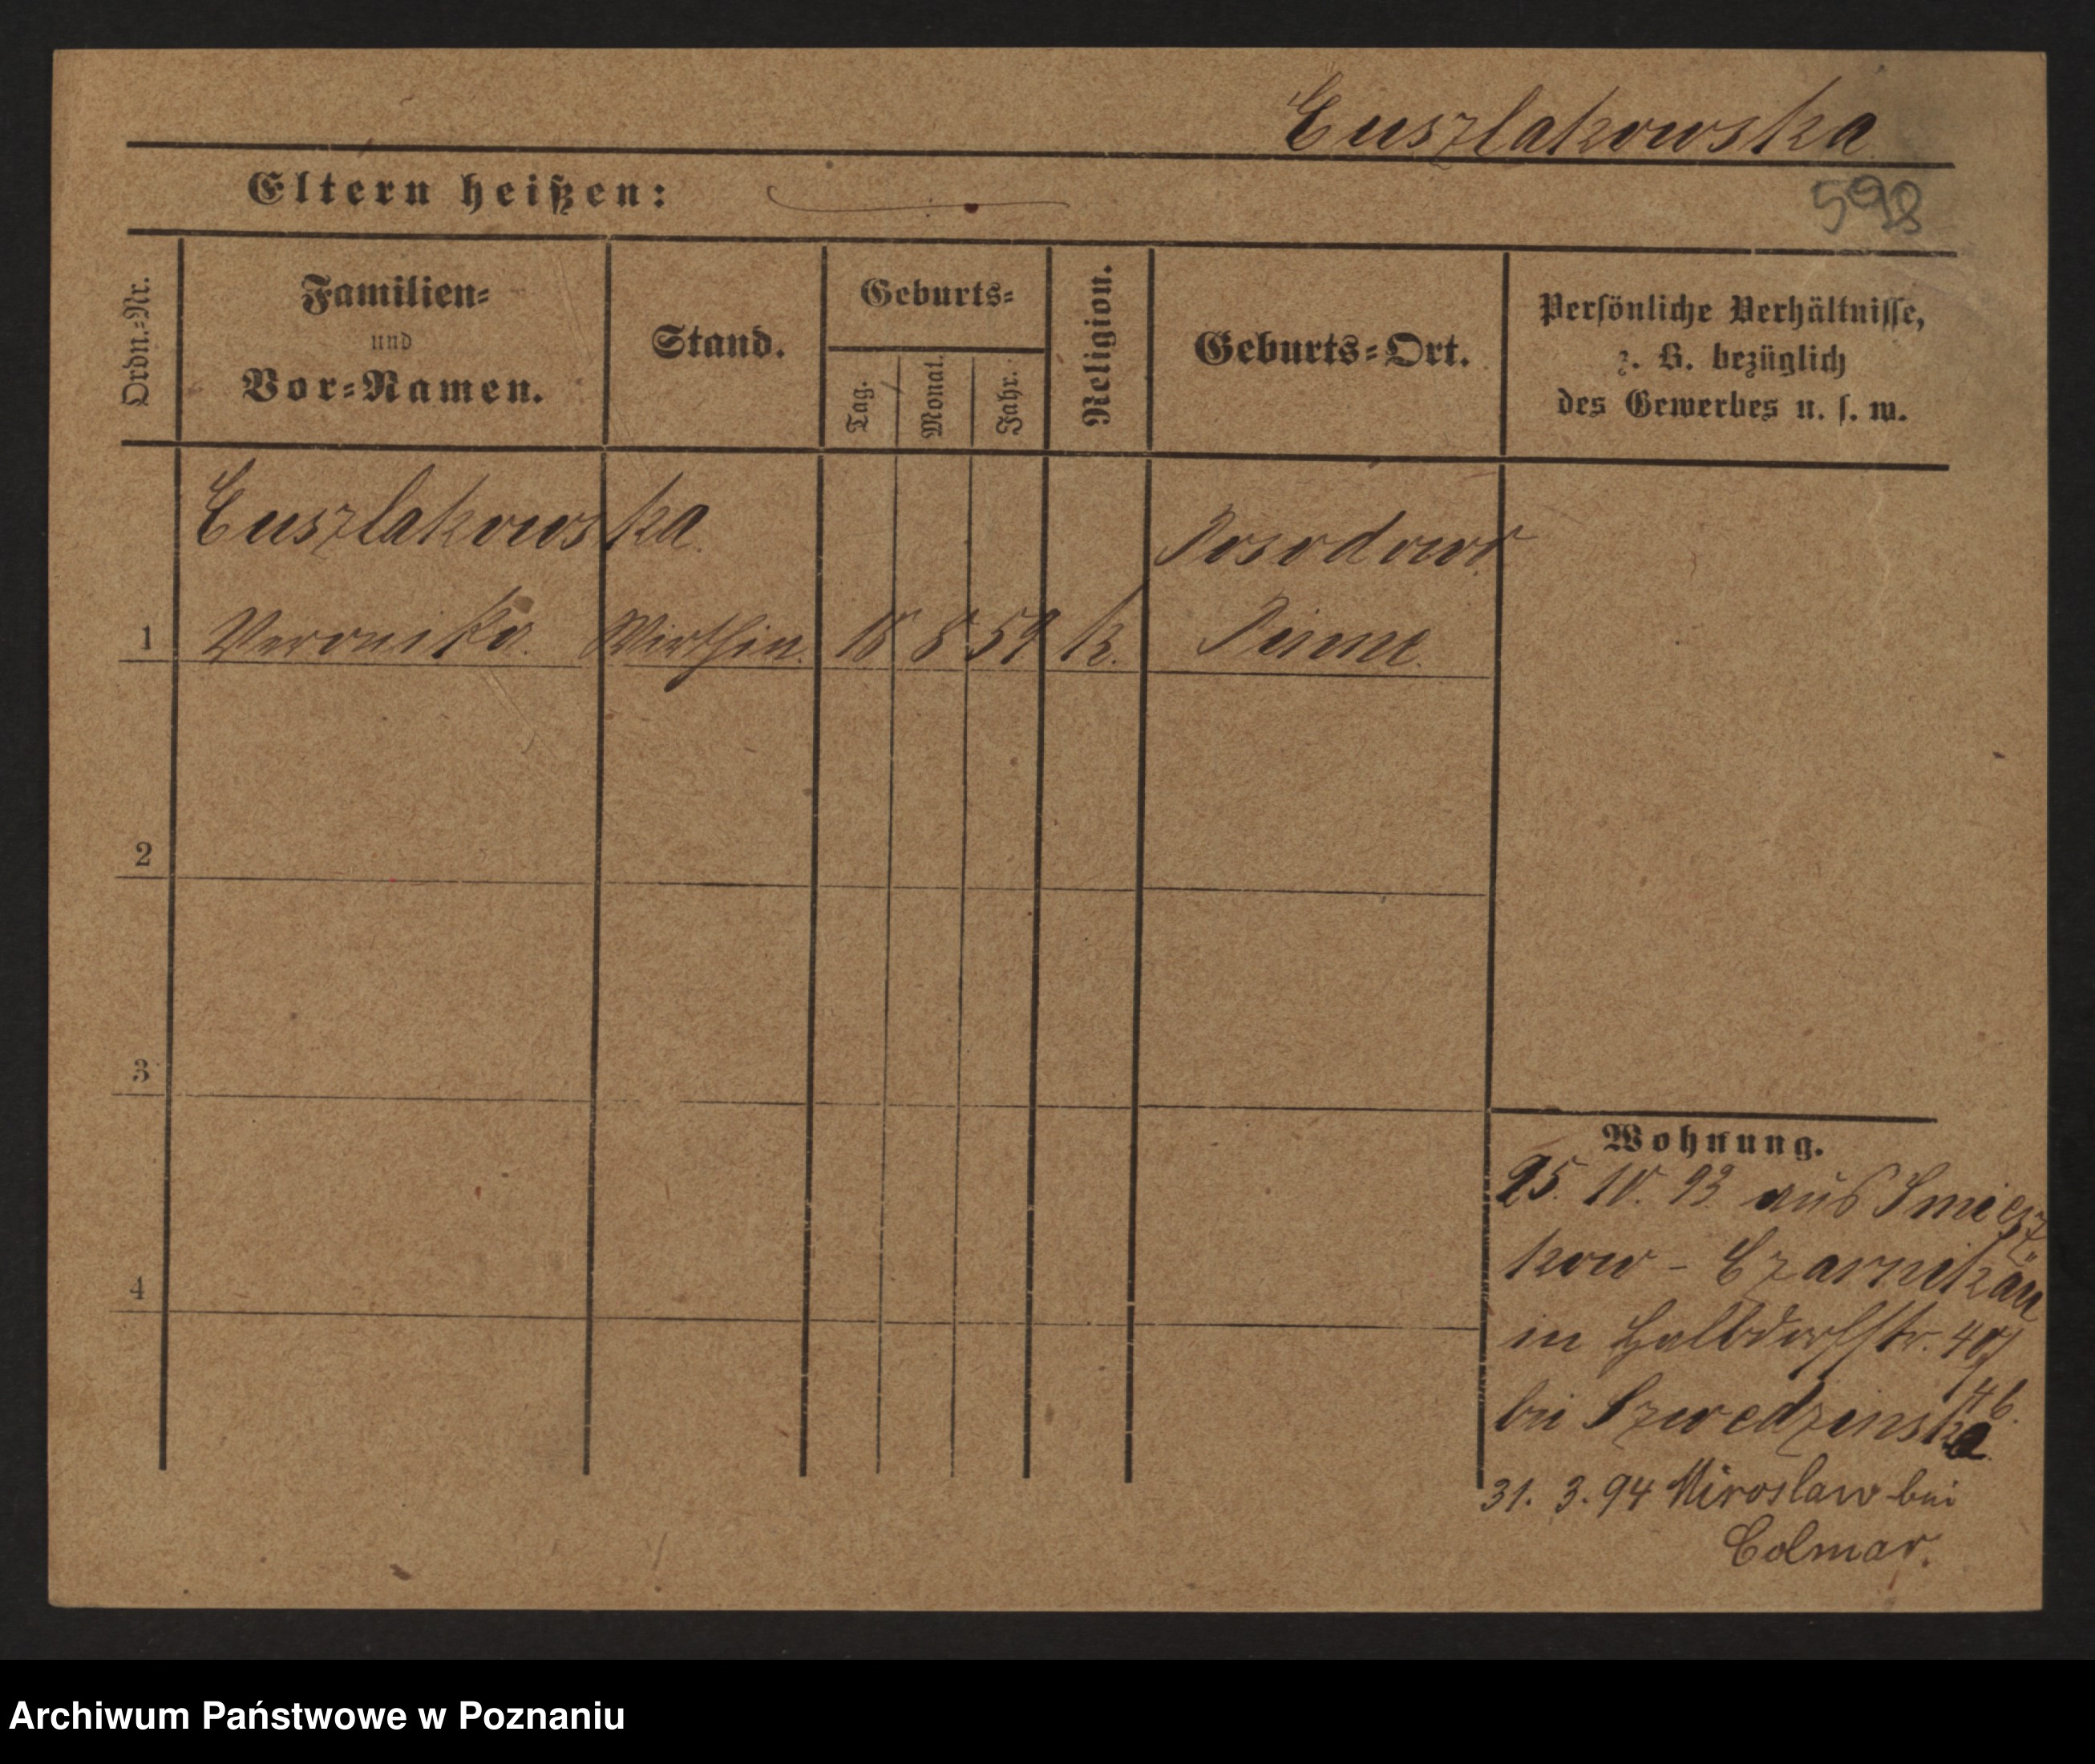 Cuszlakowska
Eltern heißen:
598
Ordn.=Nr.
Familien=
und
Vor=Namen.
Stand.
Geburts=
Tag.
Monat.
Jahr.
Religion.
Geburts=Ort.
Persönliche Verhältnisse,
z. B. bezüglich
des Gewerbes u. s. w.
Cuszlakowska
1 Veronika. Wirthin. 18 8 59 k. Pinne
2
3
4
Wohnung.
25. 10. 93 aus Smiesz
kow - Czarnikau
in Halbdorfstr.
bei Szwedzinska
31. 3. 94 Miroslaw bei
Colmar.
Archiwum Państwowe w Poznaniu